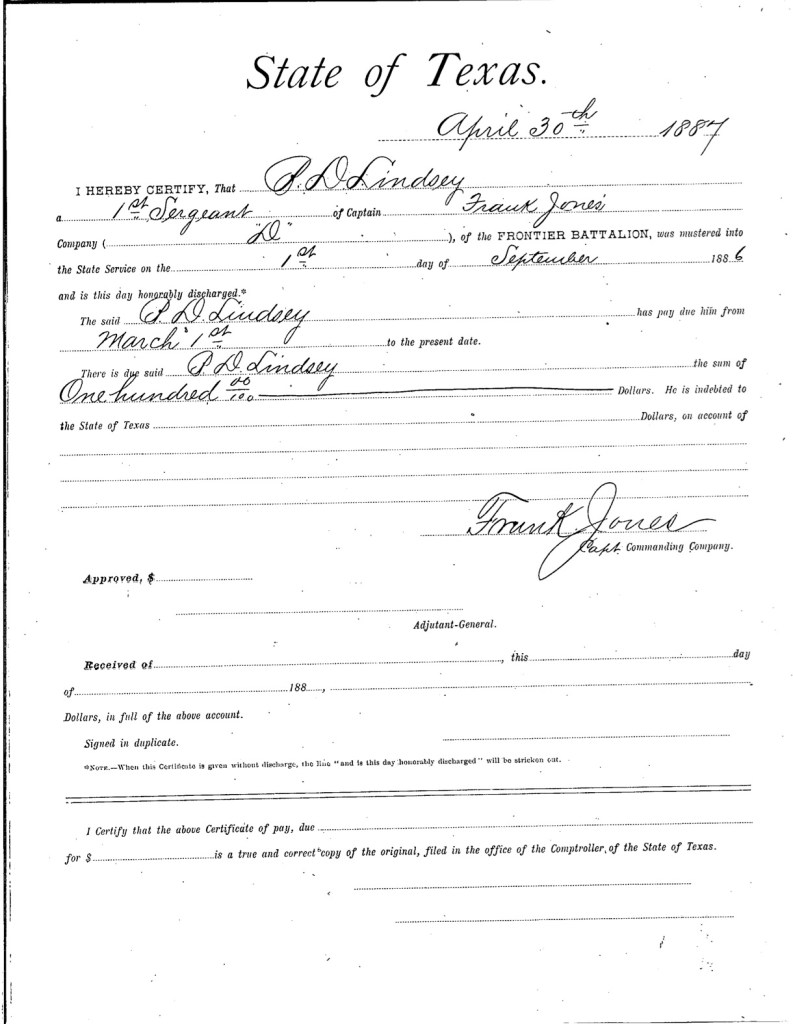 State of Texas.
April 30th 1887
I HEREBY CERTIFY, That P. D. Lindsey
a 1st Sergeant of Captain Frank Jones'
Company ( "D" ), of the FRONTIER BATTALION, was mustered into
the State Service on the 1st day of September 1886
and is this day honorably discharged.*
The said P. D. Lindsey has pay due him from
March 1st to the present date.
There is due said P. D. Lindsey the sum of
One hundred 00/100 Dollars. He is indebted to
the State of Texas Dollars, on account of
Frank Jones
Capt. Commanding Company.
Approved, $
Adjutant-General.
Received of , this day
of 188 ,
Dollars, in full of the above account.
Signed in duplicate.
*NOTE.—When this Certificate is given without discharge, the line "and is this day honorably discharged" will be stricken out.
I Certify that the above Certificate of pay, due
for $ is a true and correct copy of the original, filed in the office of the Comptroller, of the State of Texas.